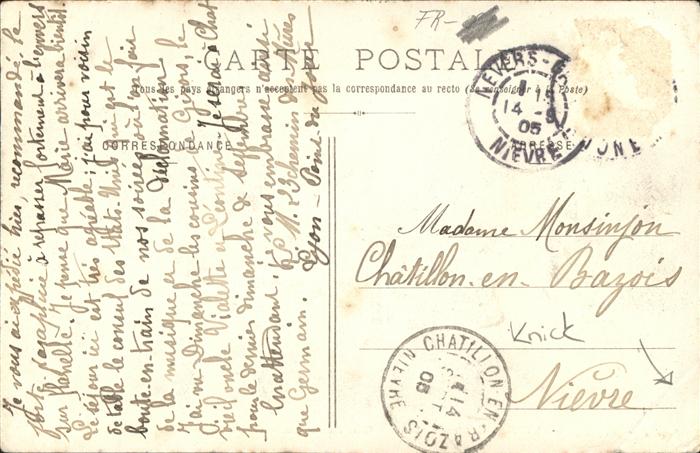 FR-
CARTE POSTALE
Tous les pays étrangers n'acceptent pas la correspondance au recto (Se renseigner à la Poste)
CORRESPONDANCE
ADRESSE
NEVERS-
15
14 -
05
NIEVRE
Madame Monsinjon
Châtillon-en-Bazois
Knick
Nièvre
CHATILLON-EN-BAZOIS
14
05
NIEVRE
Je vous ai expédié hier, recommandé, le
à repasser fortement à l'envers
sur flanelle. Je pense que Marie arrivera bientôt.
Le séjour ici est très agréable; j'ai pour voisin
de table le consul des Etats-Unis qui est le
boute-en-train de nos soirées où l'on fait
de la musique et de la déclamation.
J'ai vu Dimanche les cousins de Givors, le
vieil oncle Violette et Léontine. Je serai à Chat
pour le dernier dimanche de septembre.
En attendant, je vous embrasse ainsi
que Germain.
Lyon - Point du Jour